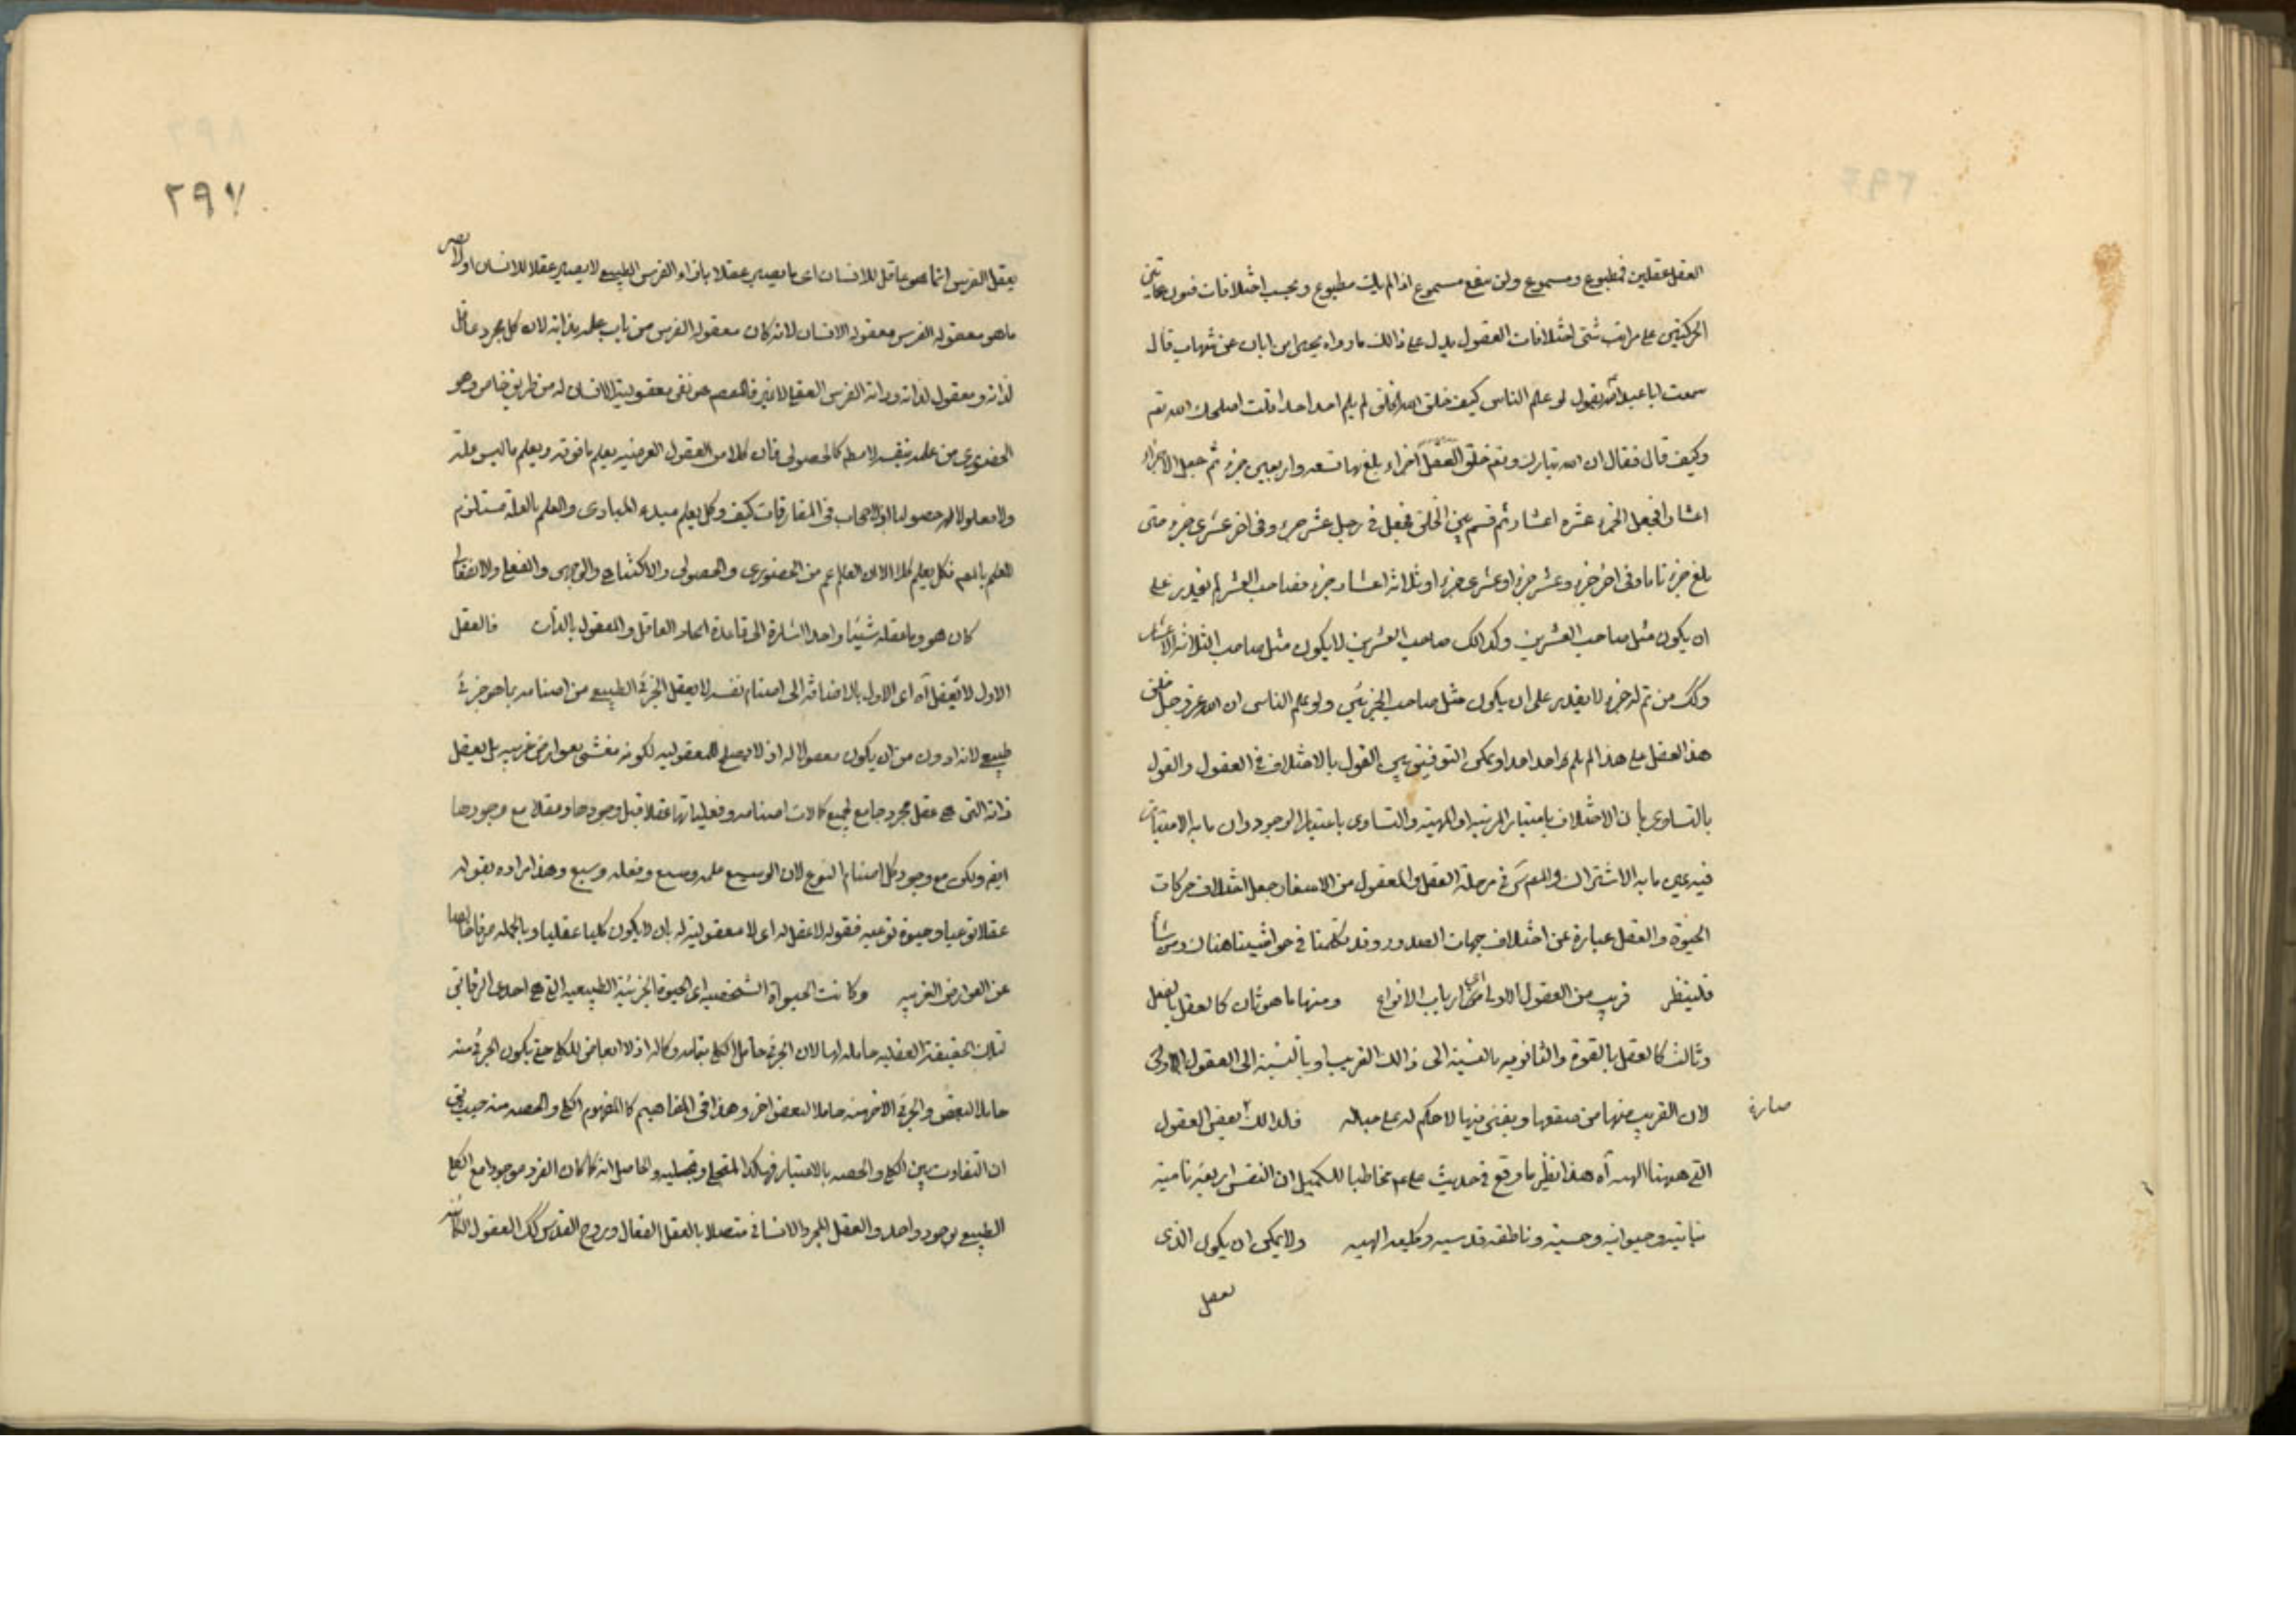 العقل عقلين فمطبوع ومسموع ولن ينفع مسموع اذا لم يك مطبوع وبحسب اختلافات فنون هاتين
الحركتين على مراتب شتى اختلافات العقول يدل على ذالك ما رواه يحيى ابن ابان عن شهاب قال
سمعت ابا عبد الله يقول لو علم الناس كيف خلق الله الخلق لم يلم احد احدا قلت اصلحك الله تعم
وكيف قال فقال ان الله تبارك وتعم خلق العقل اجزاء بلغ بها تسعه واربعين جزء ثم جعل الاجزاء
اعشارا فجعل الجزء عشره اعشار ثم قسم بين الخلق فجعل في رجل عشر جزء وفى اخر عشرى جزء حتى
بلغ جزء تاما وفى اخر جزء وعشر جزء او عشرى جزء او ثلاثه اعشار جزء فصاحب العشر لم يقدر على
ان يكون مثل صاحب العشرين وكذالك صاحب العشرين لا يكون مثل صاحب الثلاثه الاعشار
وكك من تم له جزء لا يقدر على ان يكون مثل صاحب الجزئين ولو علم الناس ان الله عز وجل خلق
هذا العقل على هذا لم يلم احد احدا ويمكن التوفيق بين القول بالاختلاف في العقول والقول
بالتساوى بأن الاختلاف باعتبار المرتبه او المهيته والتساوى باعتبار الوجود وان ما به الامتياز
فيه عين ما به الاشتراك والمص في مرحلة العقل والمعقول من الاسفار جعل اختلاف حركات
الحيوة والعقل عبارة عن اختلاف جهات الصدور وقد تكلمنا في حواشينا هناك ومن شأ
فلينظر قريب من العقول الاولى اى من ارباب الانواع ومنها ما هو ثان كالعقل بالفعل
وثالث كالعقل بالقوة والثانويه بالنسبة الى ذالك القريب او بالنسبة الى العقول الاولى
لان القريب منها من صقعها ويفنى فيها لا حكم له على حياله فلذالك صارة بعض العقول
التى هيهنا الهيه آه هذا نظير ما وقع في حديث على عم مخاطبا للكميل ان النفس اربعة نامية
نباتيه وحيوانيه وحسيه وناطقه قدسيه وكليه الهيه ولا يمكن ان يكون الذى
يعقل
٢٩٧
يعقل الفرس انما هو عاقل للانسان اى ما يصير عقلا بازاء الفرس الطبيعى لا يصير عقلا للانسان اولا يصير
ما هو معقوله الفرس معقوله الانسان لانه كان معقوله الفرس من باب علمه بذاته لان كل مجرد عاقل
لذاته ومعقول لذاته وذاته الفرس العقلى لا غير فالمعصم هو نفى معقوليته الانسان له من طريق خاص وهو
الحضورى من علمه بنفسه لا مطم كالحصولى فان كلا من العقول العرضيه يعلم ما فوقه ويعلم ما ليس علة
ولا معلولا له حصوليا اذ لا حجاب فى المفارقات كيف وكل يعلم مبدء المبادى والعلم بالعلة مستلزم
للعلم بالمعم فكل يعلم كلا الا ان العلم اعم من الحضورى والحصولى والاكتناهى والوجهى والفعلى والانفعالى
كان هو وما عقله شيئا واحدا اشارة الى قاعدة اتحاد العاقل والمعقول بالذات فالعقل
الاول لا تعقل آه اى الاول بالاضافة الى اصنام نفسه لا يعقل الجزئى الطبيعى من اصنامه بما هو جزئى
طبيعى لانه ادون من ان يكون معقولا له اذ لا يصلح للمعقوليه لكونه مغشى بعوارض غريبه بل يعقل
ذاته التى هى عقل مجرد جامع لجميع كمالات اصنامه وفعلياتها عقلا قبل وجودها وعقلا مع وجودها
ايضم ولكن مع وجود كل اصنام النوع لان الوسيع علمه وسيع وفعله وسيع وهذا مراده بقوله
عقلا نوعيا وحيوة نوعيه فقوله لا عقل له اى لا معقولية له بان لا يكون كليا عقليا وبالجمله مرفا خالصا
عن العوارض الغريبه وكانت الحيواة الشخصيه اى الحيوة الجزئية الطبيعيه التى هى احدى الرقائق
لتلك الحقيقة العقليه حامله لها لان الجزئى حامل الكلى بتمامه وكماله اذ لا ابعاض للكلى حتى يكون الجزئى منه
حاملا لبعض والجزئى الاخر منه حاملا لبعض اخر وهذا فى المفاهيم كالمفهوم الكلى والحصه منه حيث
ان التفاوت بين الكلى والحصه بالاعتبار فهكذا المتجلى وتجليه والحاصل انه كما كان الفرد موجودا مع الكلى
الطبيعى بوجود واحد والعقل المجرد الانسانى متصلا بالعقل الفعال وروح القدس كك العقول